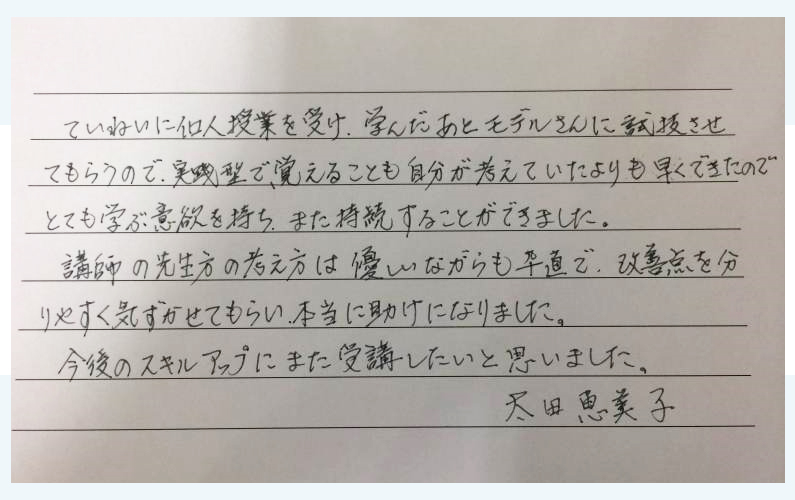 ていねいに個人授業を受け、学んだあとモデルさんに試技させ
てもらうので、実践型で覚えることも自分が考えていたよりも早くできたので
とても学ぶ意欲を持ち、また持続することができました。
講師の先生方の考え方は優しいながらも率直で、改善点を分
りやすく気ずかせてもらい、本当に助けになりました。
今後のスキルアップにまた受講したいと思いました。
太田恵美子